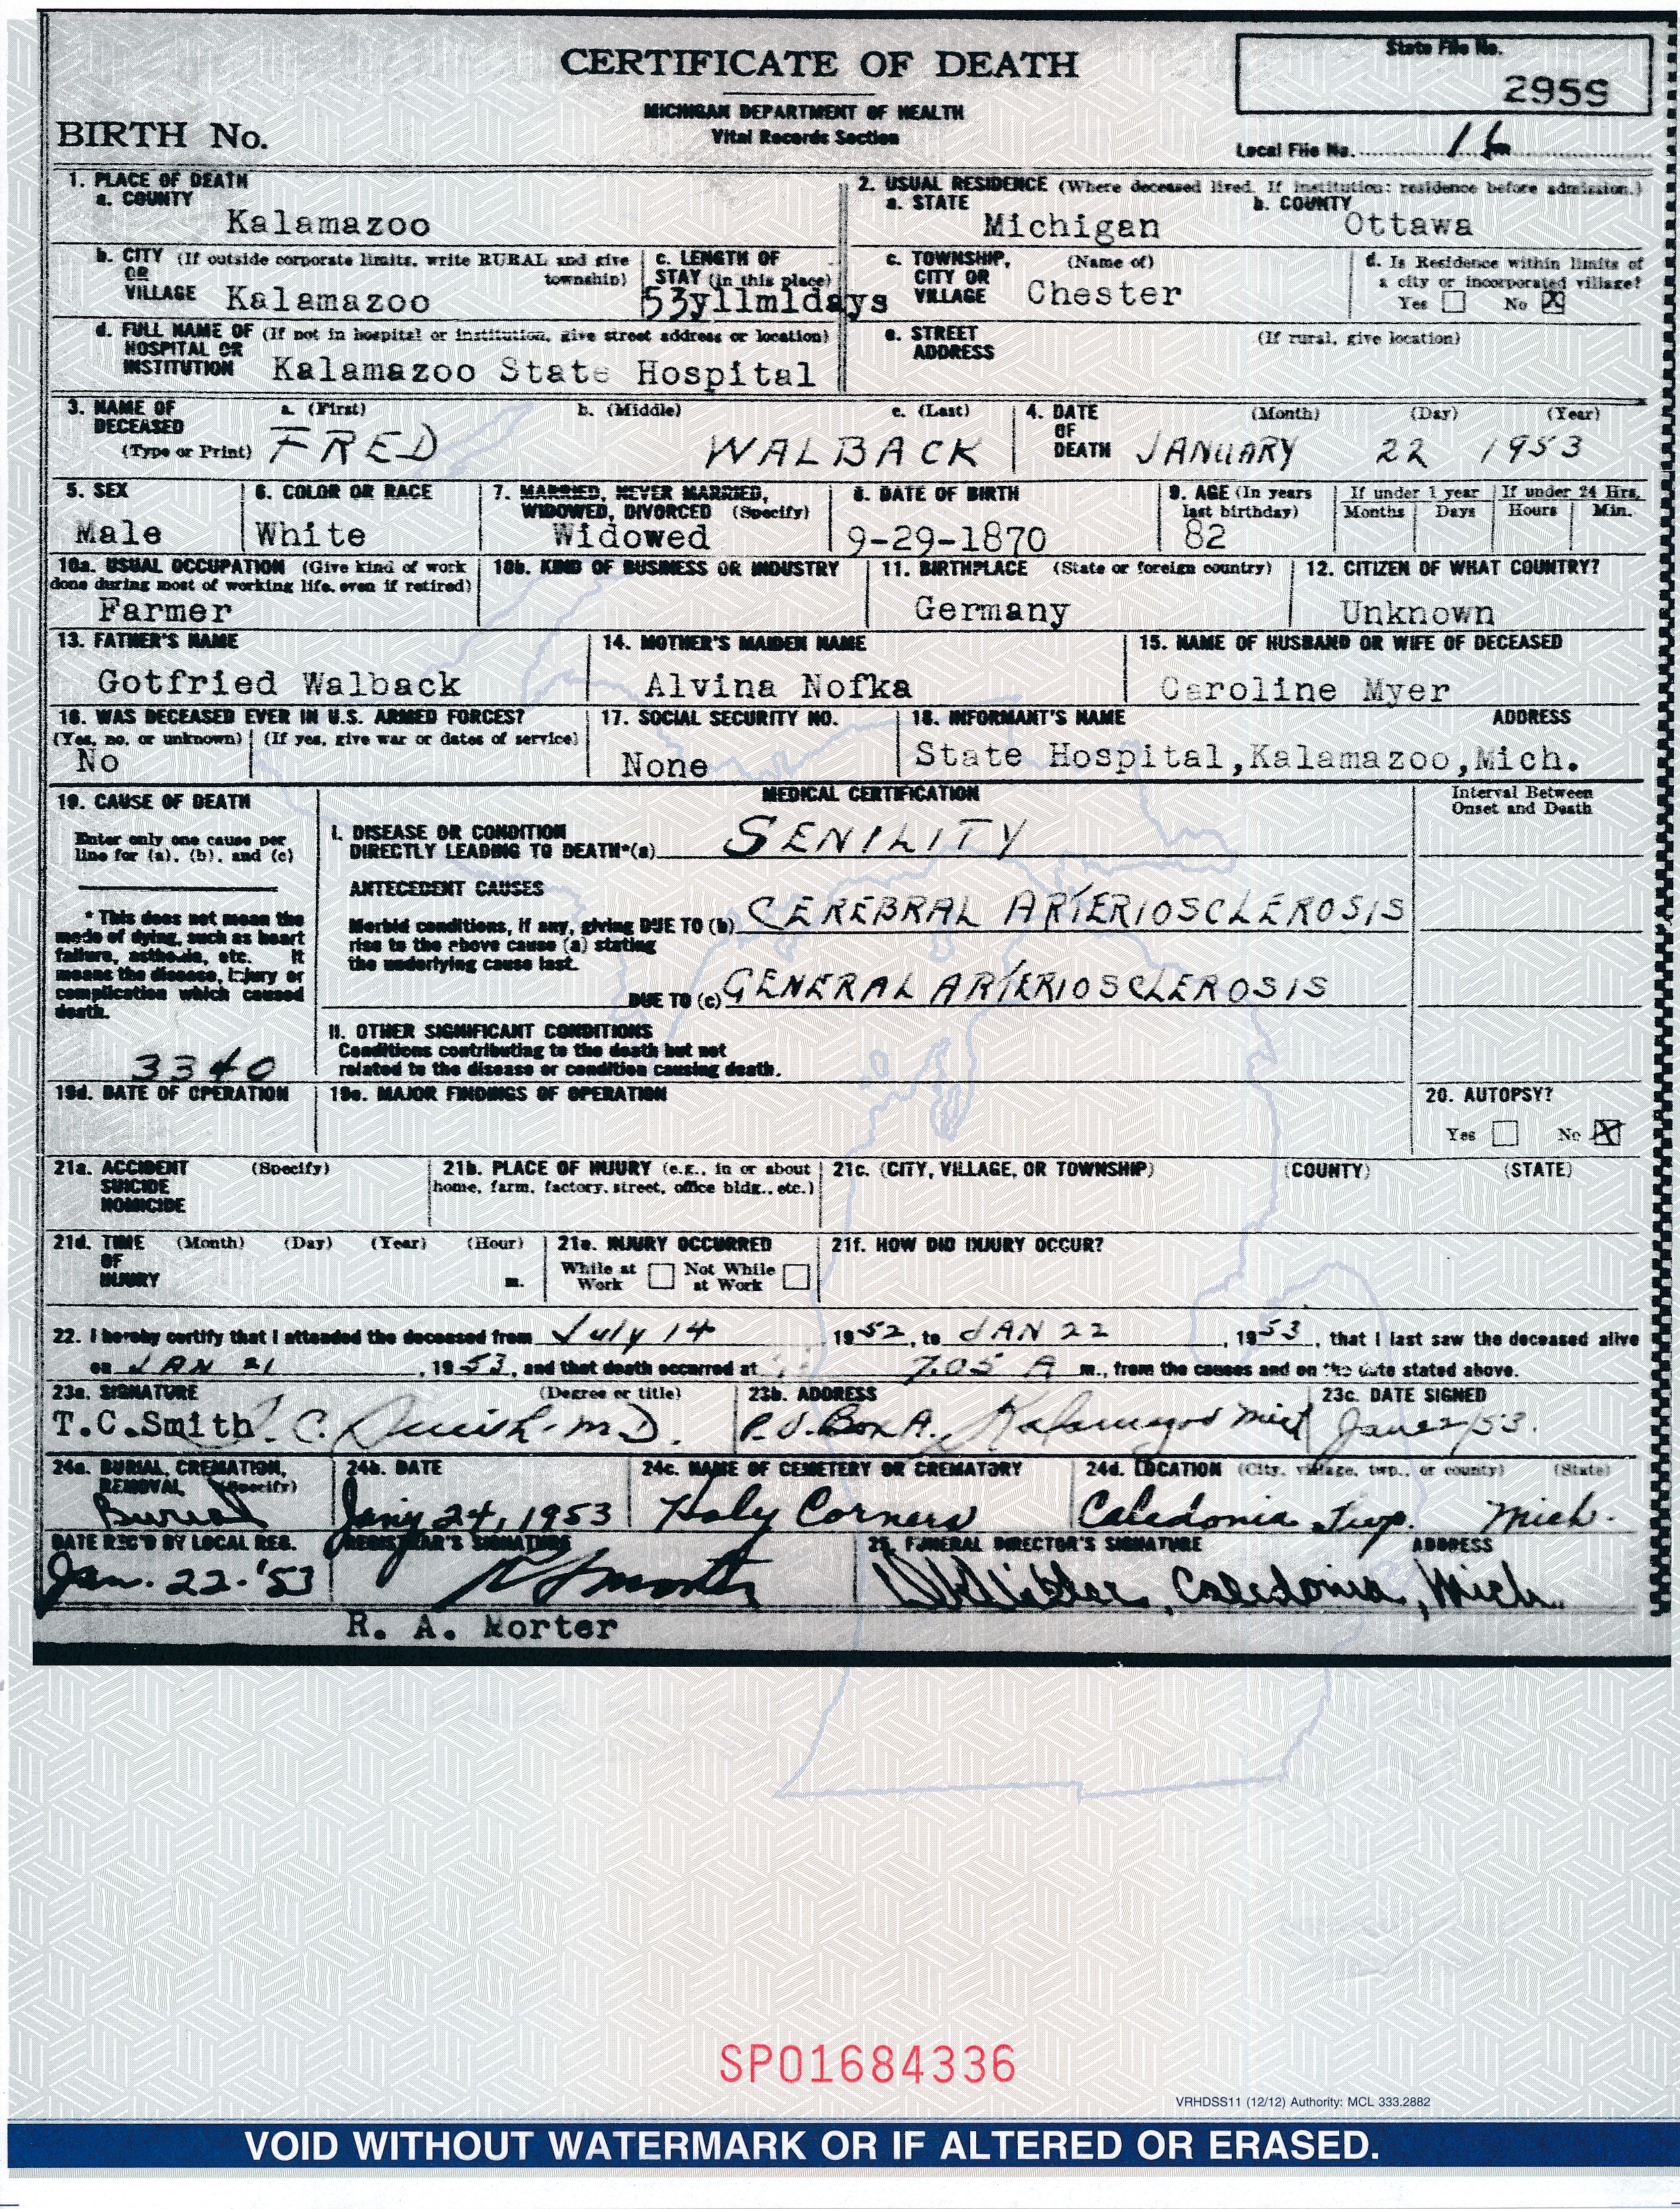 CERTIFICATE OF DEATH
MICHIGAN DEPARTMENT OF HEALTH
Vital Records Section
State File No.
2959
BIRTH No.
Local File No.
1. PLACE OF DEATH
a. COUNTY
Kalamazoo
2. USUAL RESIDENCE (Where deceased lived. If institution: residence before admission.)
a. STATE
Michigan
b. COUNTY
Ottawa
b. CITY (If outside corporate limits, write RURAL and give
OR township)
VILLAGE Kalamazoo
c. LENGTH OF
STAY (in this place)
53y11m1days
c. TOWNSHIP, (Name of)
CITY OR
VILLAGE Chester
d. Is Residence within limits of
a city or incorporated village?
Yes No X
d. FULL NAME OF (If not in hospital or institution, give street address or location)
HOSPITAL OR
INSTITUTION Kalamazoo State Hospital
e. STREET (If rural, give location)
ADDRESS
3. NAME OF a. (First) b. (Middle) c. (Last)
DECEASED
(Type or Print) FRED WALBACK
4. DATE (Month) (Day) (Year)
OF
DEATH JANUARY 22 1953
5. SEX
Male
6. COLOR OR RACE
White
7. MARRIED, NEVER MARRIED,
WIDOWED, DIVORCED (Specify)
Widowed
8. DATE OF BIRTH
9-29-1870
9. AGE (In years
last birthday)
82
If under 1 year
Months Days
If under 24 Hrs.
Hours Min.
10a. USUAL OCCUPATION (Give kind of work
done during most of working life, even if retired)
Farmer
10b. KIND OF BUSINESS OR INDUSTRY
11. BIRTHPLACE (State or foreign country)
Germany
12. CITIZEN OF WHAT COUNTRY?
Unknown
13. FATHER'S NAME
Gotfried Walback
14. MOTHER'S MAIDEN NAME
Alvina Nofka
15. NAME OF HUSBAND OR WIFE OF DECEASED
Caroline Myer
16. WAS DECEASED EVER IN U.S. ARMED FORCES?
(Yes, no, or unknown) (If yes, give war or dates of service)
No
17. SOCIAL SECURITY NO.
None
18. INFORMANT'S NAME ADDRESS
State Hospital,Kalamazoo,Mich.
19. CAUSE OF DEATH
Enter only one cause per
line for (a), (b), and (c)
* This does not mean the
mode of dying, such as heart
failure, asthenia, etc. It
means the disease, injury or
complication which caused
death.
3340
MEDICAL CERTIFICATION
Interval Between
Onset and Death
I. DISEASE OR CONDITION
DIRECTLY LEADING TO DEATH*(a) SENILITY
ANTECEDENT CAUSES
Morbid conditions, if any, giving DUE TO (b) CEREBRAL ARTERIOSCLEROSIS
rise to the above cause (a) stating
the underlying cause last.
DUE TO (c) GENERAL ARTERIOSCLEROSIS
II. OTHER SIGNIFICANT CONDITIONS
Conditions contributing to the death but not
related to the disease or condition causing death.
19d. DATE OF OPERATION
19e. MAJOR FINDINGS OF OPERATION
20. AUTOPSY?
Yes No X
21a. ACCIDENT (Specify)
SUICIDE
HOMICIDE
21b. PLACE OF INJURY (e.g., in or about
home, farm, factory, street, office bldg., etc.)
21c. (CITY, VILLAGE, OR TOWNSHIP) (COUNTY) (STATE)
21d. TIME (Month) (Day) (Year) (Hour)
OF
INJURY m.
21e. INJURY OCCURRED
While at Not While
Work at Work
21f. HOW DID INJURY OCCUR?
22. I hereby certify that I attended the deceased from July 14, 1952, to JAN 22, 1953, that I last saw the deceased alive
on JAN 21, 1953, and that death occurred at 7.05 A m., from the causes and on the date stated above.
23a. SIGNATURE (Degree or title)
T.C.Smith T. C. Smith M.D.
23b. ADDRESS
P.O. Box A. Kalamazoo Mich
23c. DATE SIGNED
24a. BURIAL, CREMATION,
REMOVAL (Specify)
Burial
24b. DATE
24, 1953
24c. NAME OF CEMETERY OR CREMATORY
Holy Corners
24d. LOCATION (City, village, twp., or county) (State)
Caledonia Twp. Mich.
DATE REC'D BY LOCAL REG.
Jan. 22-'53
REGISTRAR'S SIGNATURE
R A Morter
R. A. Morter
25. FUNERAL DIRECTOR'S SIGNATURE ADDRESS
Caledonia, Mich.
SP01684336
VRHDSS11 (12/12) Authority: MCL 333.2882
VOID WITHOUT WATERMARK OR IF ALTERED OR ERASED.